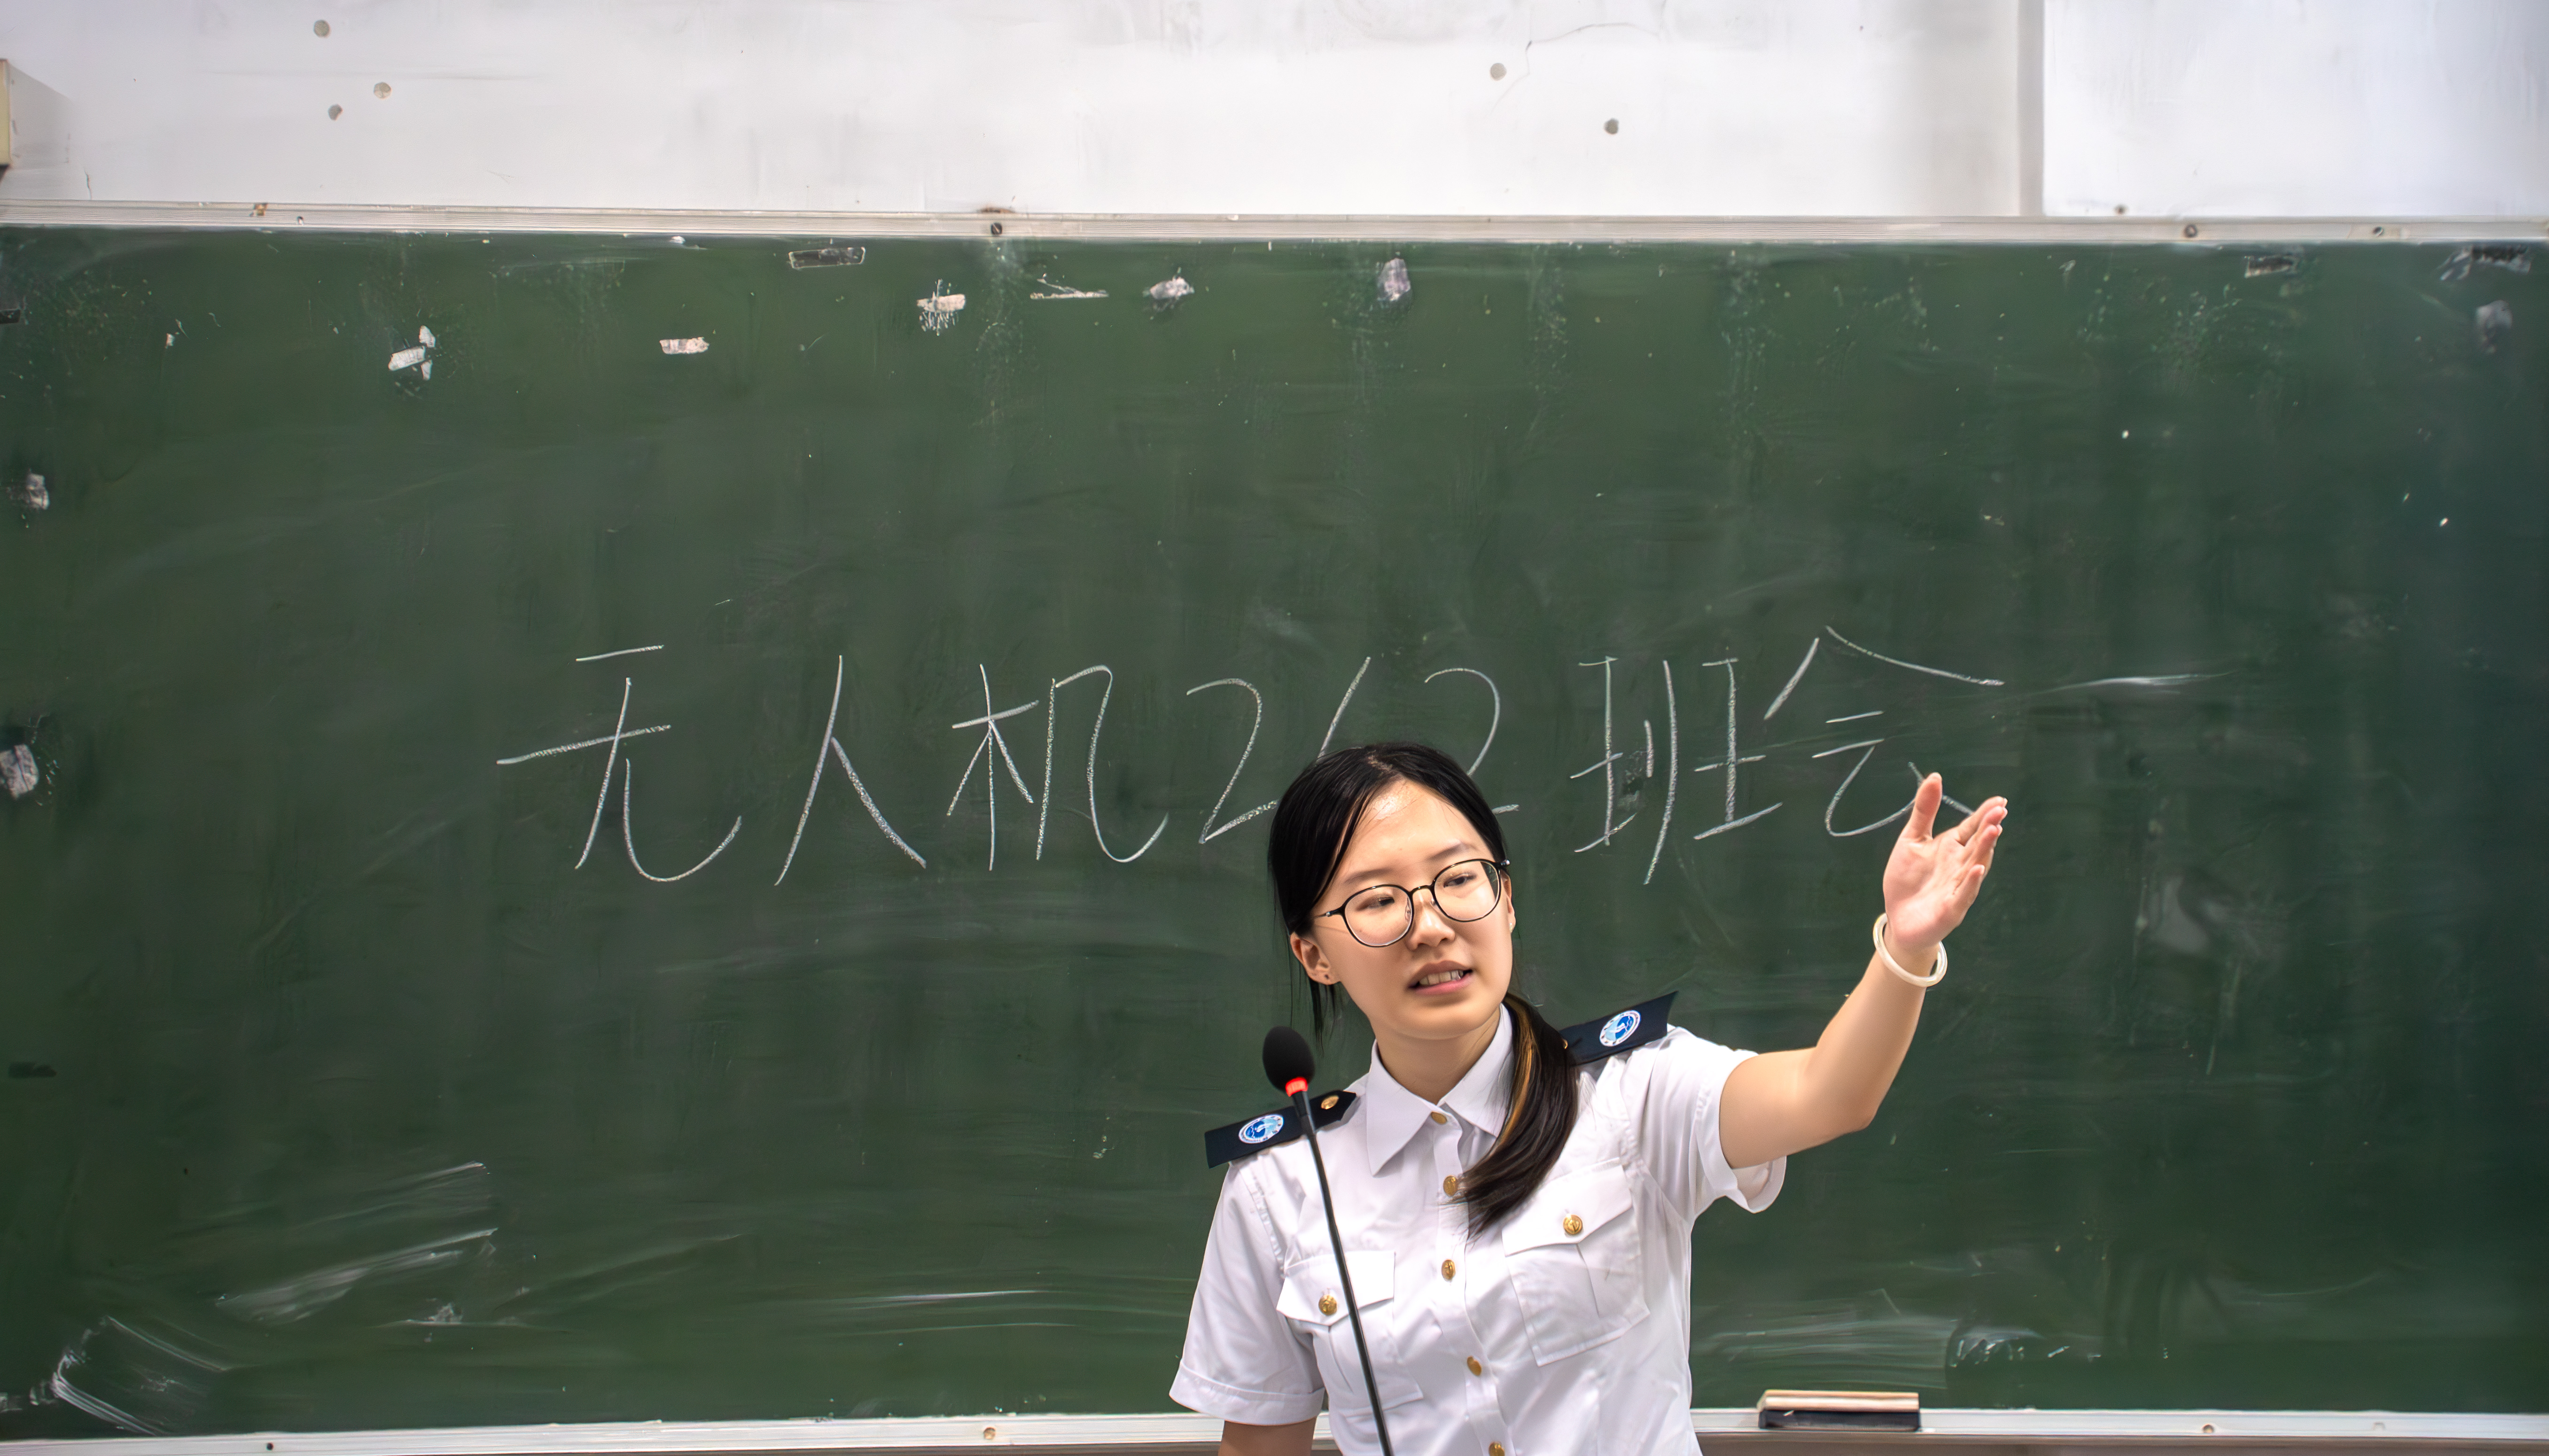 无人机262班会